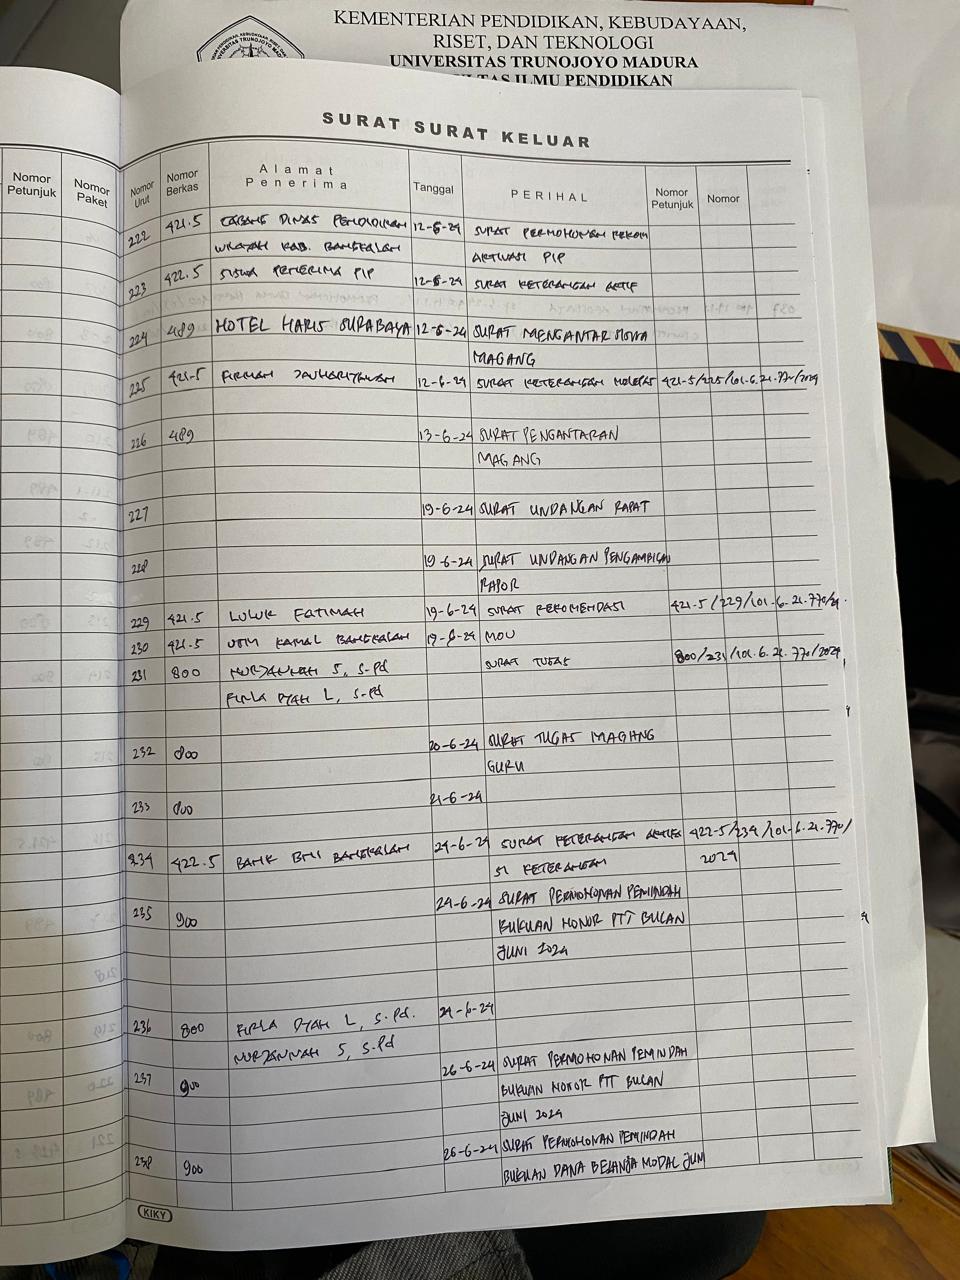 KEMENTERIAN PENDIDIKAN, KEBUDAYAAN,
RISET, DAN TEKNOLOGI
UNIVERSITAS TRUNOJOYO MADURA
FAKULTAS ILMU PENDIDIKAN
SURAT SURAT KELUAR
Nomor Petunjuk Nomor Paket Nomor Urut Nomor Berkas Alamat Penerima Tanggal PERIHAL Nomor Petunjuk Nomor
222 421.5 CABANG DINAS PENDIDIKAN 12-6-24 SURAT PERMOHONAN REKOM
WILAYAH KAB. BANGKALAN AKTIVASI PIP
223 422.5 SISWA PENERIMA PIP 12-6-24 SURAT KETERANGAN AKTIF
224 489 HOTEL HARIS SURABAYA 12-6-24 SURAT MENGANTAR SISWA
MAGANG
225 421.5 12-6-24 SURAT KETERANGAN 421.5/225/101.6.21.770/2024
226 489 13-6-24 SURAT PENGANTARAN
MAGANG
227 19-6-24 SURAT UNDANGAN RAPAT
228 19-6-24 SURAT UNDANGAN PENGAMBILAN
RAPOR
229 421.5 LULUK FATIMAH 19-6-24 SURAT REKOMENDASI 421.5/229/101.6.21.770/24.
230 421.5 UTM KAMAL BANGKALAN 19-6-24 MOU
231 800 NURJANNAH S, S.Pd SURAT TUGAS 800/231/101.6.21.770/2024
FIRLA DYAH L, S.Pd
232 800 20-6-24 SURAT TUGAS MAGANG
GURU
233 800 21-6-24
234 422.5 BANK BNI BANGKALAN 24-6-24 SURAT KETERANGAN AKTIF 422.5/234/101.6.21.770/
KETERANGAN 2024
235 900 24-6-24 SURAT PERMOHONAN PEMINDAH
BUKUAN HONOR PTT BULAN
JUNI 2024
236 800 FIRLA DYAH L, S.Pd. 24-6-24
NURJANNAH S, S.Pd
237 900 26-6-24 SURAT PERMOHONAN PEMINDAH
BUKUAN HONOR PTT BULAN
JUNI 2024
238 900 26-6-24 SURAT PERMOHONAN PEMINDAH
BUKUAN DANA BELANJA MODAL JUNI
KIKY